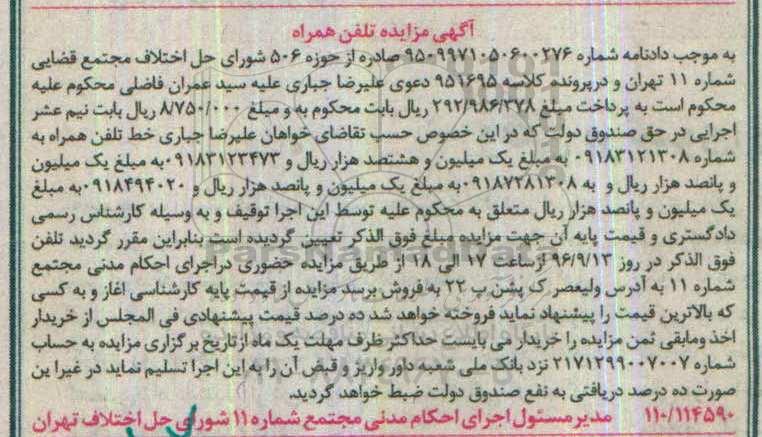 آگهی مزایده تلفن همراه
به موجب دادنامه شماره ۹۵۰۹۹۷۱۰۵۰۶۰۰۲۷۶ صادره از حوزه ۵۰۶ شورای حل اختلاف مجتمع قضایی
شماره ۱۱ تهران و در پرونده کلاسه ۹۵۱۶۹۵ دعوی علیرضا جباری علیه سید عمران فاضلی محکوم علیه
محکوم است به پرداخت مبلغ ۲۹۲/۹۸۶/۲۷۸ ریال بابت محکوم به و مبلغ ۸/۷۵۰/۰۰۰ ریال بابت نیم عشر
اجرایی در حق صندوق دولت که در این خصوص حسب تقاضای خواهان علیرضا جباری خط تلفن همراه به
شماره ۰۹۱۸۳۱۲۱۳۰۸ به مبلغ یک میلیون و هشتصد هزار ریال و ۰۹۱۸۳۱۲۳۴۷۳به مبلغ یک میلیون
و پانصد هزار ریال و به ۰۹۱۸۷۲۸۱۳۰۸به مبلغ یک میلیون و پانصد هزار ریال و ۰۹۱۸۴۹۴۰۲۰به مبلغ
یک میلیون و پانصد هزار ریال متعلق به محکوم علیه توسط این اجرا توقیف و به وسیله کارشناس رسمی
دادگستری و قیمت پایه آن جهت مزایده مبلغ فوق الذکر تعیین گردیده است بنابراین مقرر گردید تلفن
فوق الذکر در روز ۹۶/۹/۱۳ ازساعت ۱۷ الی ۱۸ از طریق مزایده حضوری دراجرای احکام مدنی مجتمع
شماره ۱۱ به آدرس ولیعصر ک پشن پ ۲۲ به فروش برسد مزایده از قیمت پایه کارشناسی اغاز و به کسی
که بالاترین قیمت را پیشنهاد نماید فروخته خواهد شد ده درصد قیمت پیشنهادی فی المجلس از خریدار
اخذ ومابقی ثمن مزایده را خریدار می بایست حداکثر ظرف مهلت یک ماه ازتاریخ برگزاری مزایده به حساب
شماره ۲۱۷۱۲۹۹۰۰۷۰۰۷ نزد بانک ملی شعبه داور واریز و قبض آن را به این اجرا تسلیم نماید در غیرا ین
صورت ده درصد دریافتی به نفع صندوق دولت ضبط خواهد گردید.
۱۱۰/۱۱۴۵۹۰ مدیر مسئول اجرای احکام مدنی مجتمع شماره ۱۱ شورای حل اختلاف تهران